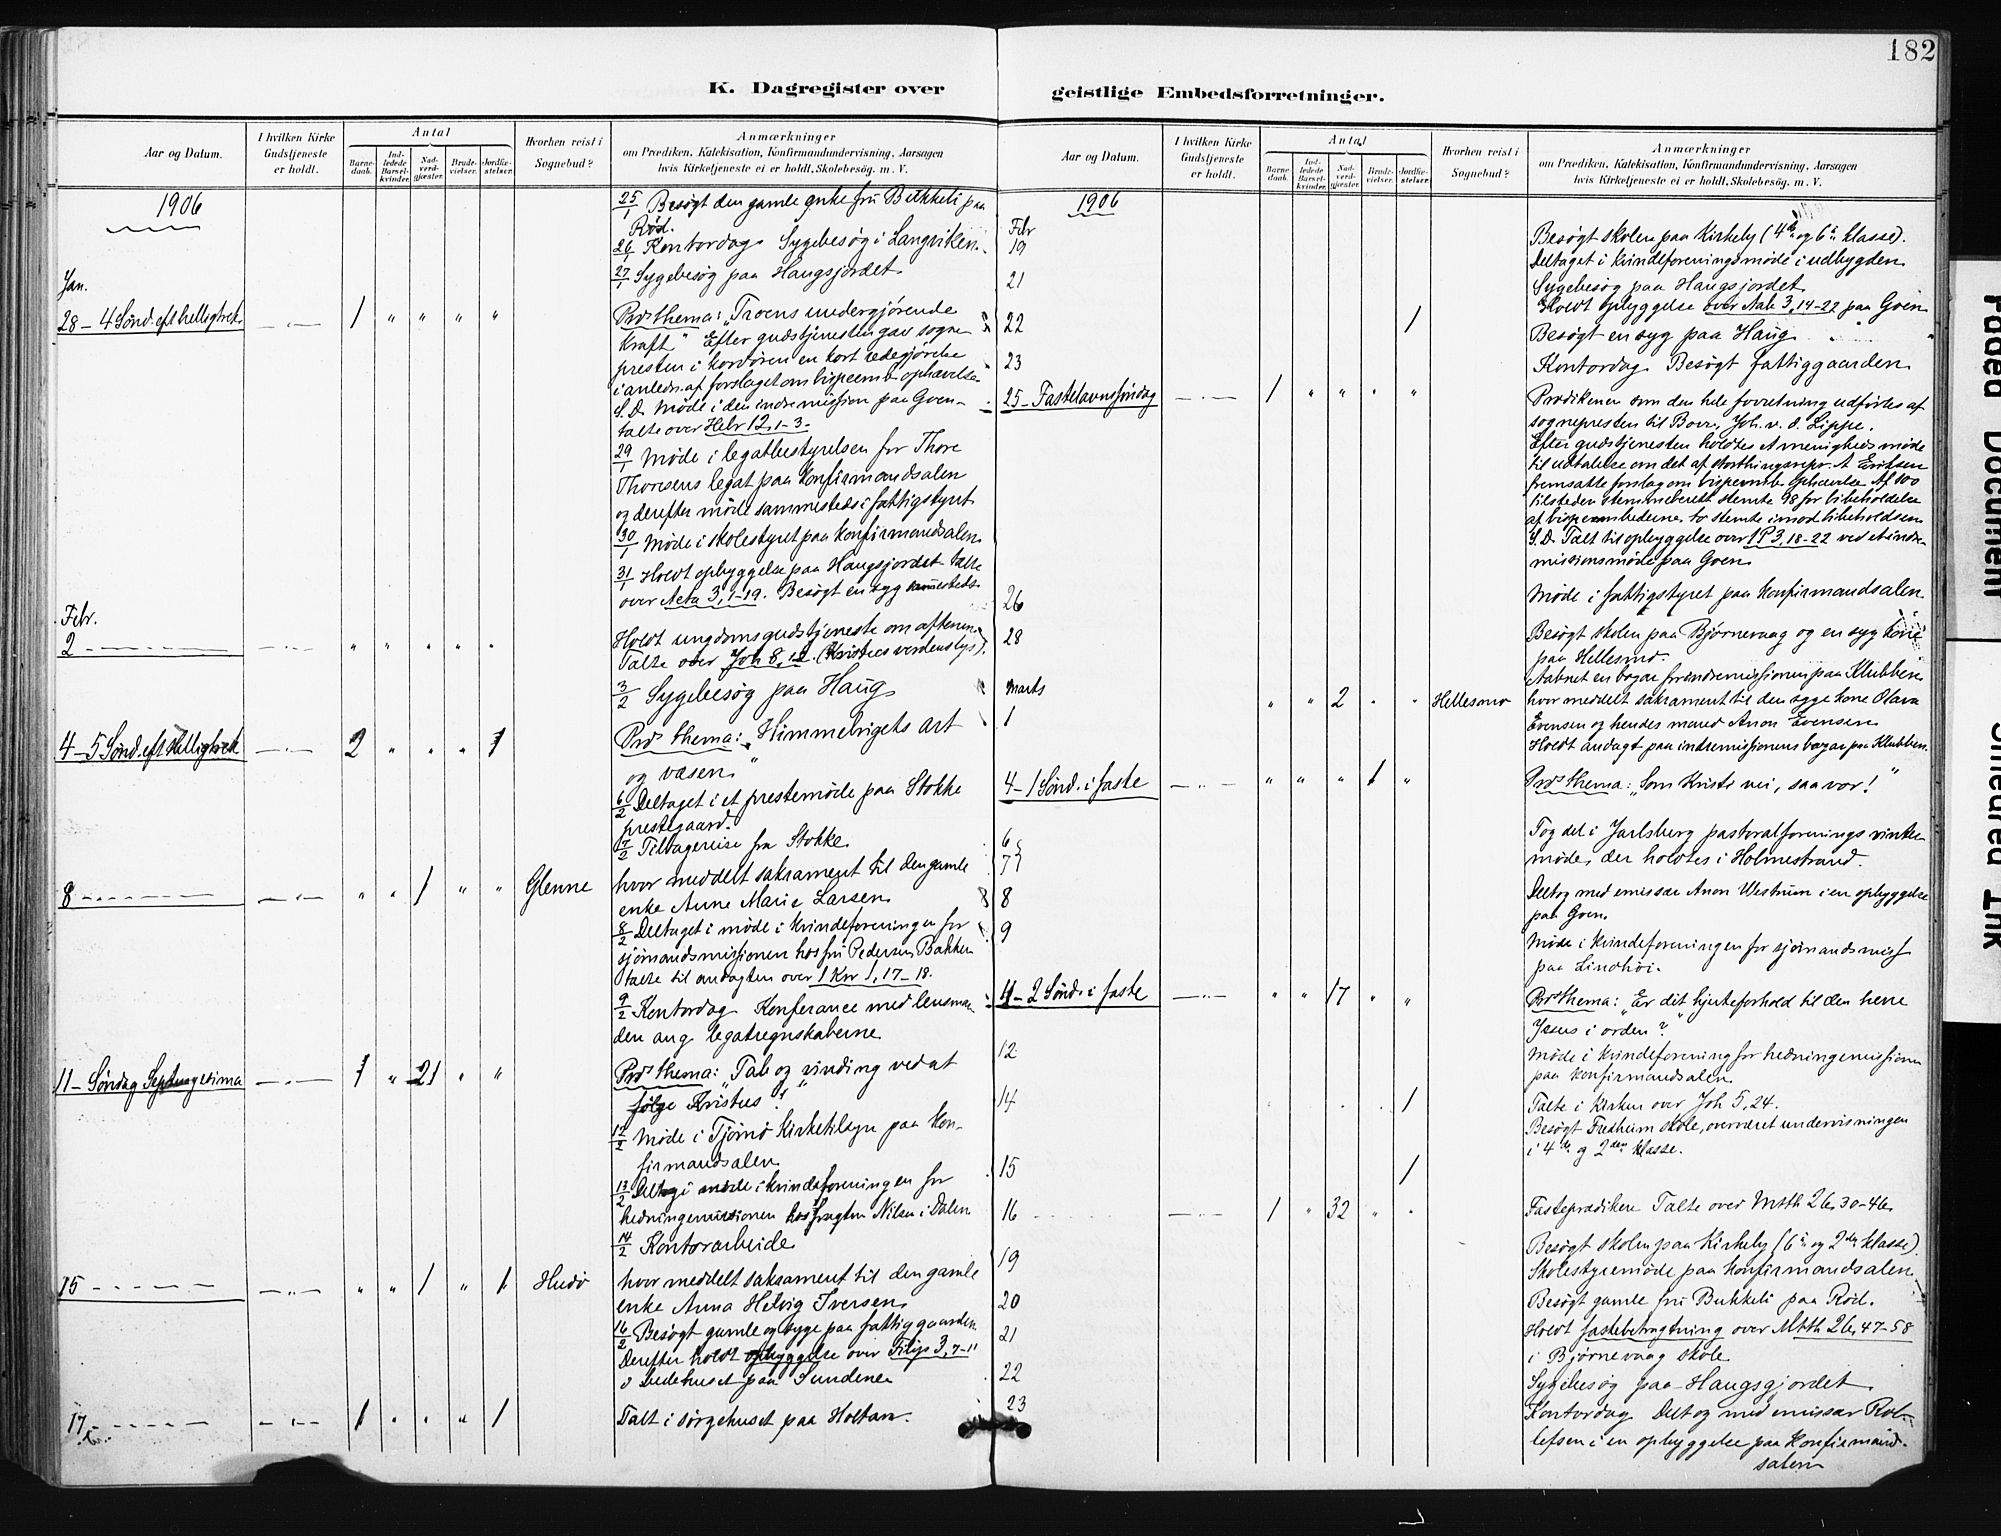 182
K. Dagregister over
geistlige Embedsforretninger.
Aar og Datum.
I hvilken Kirke
Gudstjeneste
er holdt.
Antal
Barne-
daab.
Ind-
ledede
Barsel-
kvinder.
Nad-
verd-
gjæster.
Brude-
vielser.
Jordfæ-
stelser.
Hvorhen reist i
Sognebud?
Anmærkninger
om Prædiken, Katekisation, Konfirmandundervisning, Aarsagen
hvis Kirketjeneste ei er holdt, Skolebesøg. m. V.
1906
25/1 Besøgt den gamle enke fru Bukkeli paa
Rød.
26/1 Kontordag. Sygebesøg i Langviken.
27/1 Sygebesøg paa Haugsjordet
Jan.
28 - 4 Sønd. eft helligtrek. — " — 1 " " " " Præs thema: "Troens undergjørende
kraft" Efter gudstjenesten gav sogne-
presten i kordøren en kort redegjørelse
i anledn. af forslaget om bispeemb. ophævelse
S.D. Møde i den indremission paa Goen -
talte over Hebr 12, 1-3.
29/1 Møde i legatbestyrelsen for Thore
Thoresens legat paa konfirmandsalen
og derefter møde sammesteds i fattigstyret
30/1 Møde i skolestyret paa konfirmandsalen
31/1 Holdt opbyggelse paa Haugsjordet talte
over Acta 3, 1-19. Besøgt en syg sammesteds
Febr.
2 " " " " " Holdt ungdomsgudstjeneste om aftenen
Talte over Joh 8, 12 (Kristus verdens lys).
3/2 Sygebesøg paa Haug
4 - 5 Sønd. eft helligtrek — " — 2 " " " 1 Præs thema: "Himmelrigets art
og væsen"
6/2 Deltaget i et prestemøde paa Stokke
prestegaard.
7/2 Tilbagereise fra Stokke
8 — " — " " 1 " " Glenne hvor meddelt sakrament til den gamle
enke Anne Marie Larsen
8/2 Deltaget i møde i kvindeforeningen for
sjømandsmissionen hos fru Pedersen Bakken
talte til andagten over 1 Kor 1, 17-18.
9/2 Kontordag Konferance med lensman-
den ang legatregnskaberne
11 - Søndag Septuagesima — " — 1 " 21 " " Præs thema: "Tab og vinding ved at
følge Kristus!"
12/2 Møde i Tjømø Kirketilsyn paa kon-
firmandsalen
13/2 Deltog i møde i kvindeforeningen for
hedningemissionen hos Nilsen i Dalen
14/2 Kontorarbeide
15 — " — " " 1 " 1 Hudø hvor meddelt sakrament til den gamle
enke Anna Helvig Iversen
16/2 Besøgt gamle og syge paa fattiggaarden
Derefter holdt opbyggelse over Filip 3, 7-11
i Bedehuset paa Sundene
17 — " — 1 " " " 1 Talt i sørgehuset paa Holtan.
Aar og Datum.
I hvilken Kirke
Gudstjeneste
er holdt.
Antal
Barne-
daab.
Ind-
ledede
Barsel-
kvinder.
Nad-
verd-
gjæster.
Brude-
vielser.
Jordfæ-
stelser.
Hvorhen reist i
Sognebud?
Anmærkninger
om Prædiken, Katekisation, Konfirmandundervisning, Aarsagen
hvis Kirketjeneste ei er holdt, Skolebesøg. m. V.
1906
Febr
19 Besøgt skolen paa Kirkely (4de og 6te klasse).
Deltaget i kvindeforeningsmøde i udbygden
21 Sygebesøg paa Haugsjordet
Holdt opbyggelse over Aab 3, 14-22 paa Goen
22 1 Besøgt en syg paa Haug
23 Kontordag Besøgt fattiggaarden
25 - Fastelavnssøndag — " — 1 " " " " Prædikenen som den hele forretning udførtes af
sognepresten til Borre, Joh. v. d. Lippe.
Efter gudstjenesten holdtes et menighedsmøde
til udtalelse om det af storthingsrepr. A Eriksen
fremsatte forslag om bispeemb. ophævelse Af 100
tilstedeværende stemmeberett. stemte 98 for bibeholdelse
af bispeembederne, to stemte imod bibeholdelsen
S.D. Talt til opbyggelse over 1 P 3, 18-22 ved et indre-
missionsmøde paa Goen
26 Møde i fattigstyret paa konfirmandsalen
28 Besøgt skolen paa Bjørnevaag og en syg kone
paa Hellesmo.
Aabnet en bazar for indremissionen paa Klubben
Marts
1 " " 2 " " Hellesmo hvor meddelt sakrament til den syge kone Olava
Evensen og hendes mand Anon Evensen
Holdt andagt paa indremissionens bazar paa Klubben.
4 - 1 Sønd. i faste — " — " " " 1 " Præs thema: "Som Kristi vei, saa vor!"
6
7 Tog del i Jarlsberg pastoralforenings vinter-
møde, der holdtes i Holmestrand.
8 Deltog med emissær Anon Westrum i en opbyggelse
paa Goen.
9 Møde i kvindeforeningen for sjømandsmiss
paa Lindhøi.
11 - 2 Sønd. i faste — " — " " 17 " " Præs thema: "Er dit hjerteforhold til den herre
Jesus i orden?"
12 Møde i kvindeforening for hedningemissionen
paa konfirmandsalen
14 1 Talte i kirken over Joh 5, 24.
Besøgt Fredheim skole, overværet undervisningen
i 4de og 2den klasse.
15 1
16 — " — 1 " 32 " " Fasteprædiken Talte over Matth 26, 30-46
19 Besøgt skolen paa Kirkely (6te og 2den klasse)
Skolestyremøde paa konfirmandsalen
20 Besøgt gamle fru Bukkeli paa Rød.
21 Holdt fastebetragtning over Matth 26, 47-58
i Bjørnevaag skole
22 Sygebesøg paa Haugsgjordet
23 Kontordag Deltog med emissær Rol-
lefsen i en opbyggelse paa Konfirmand-
salen
Faded Document
Smeared Ink